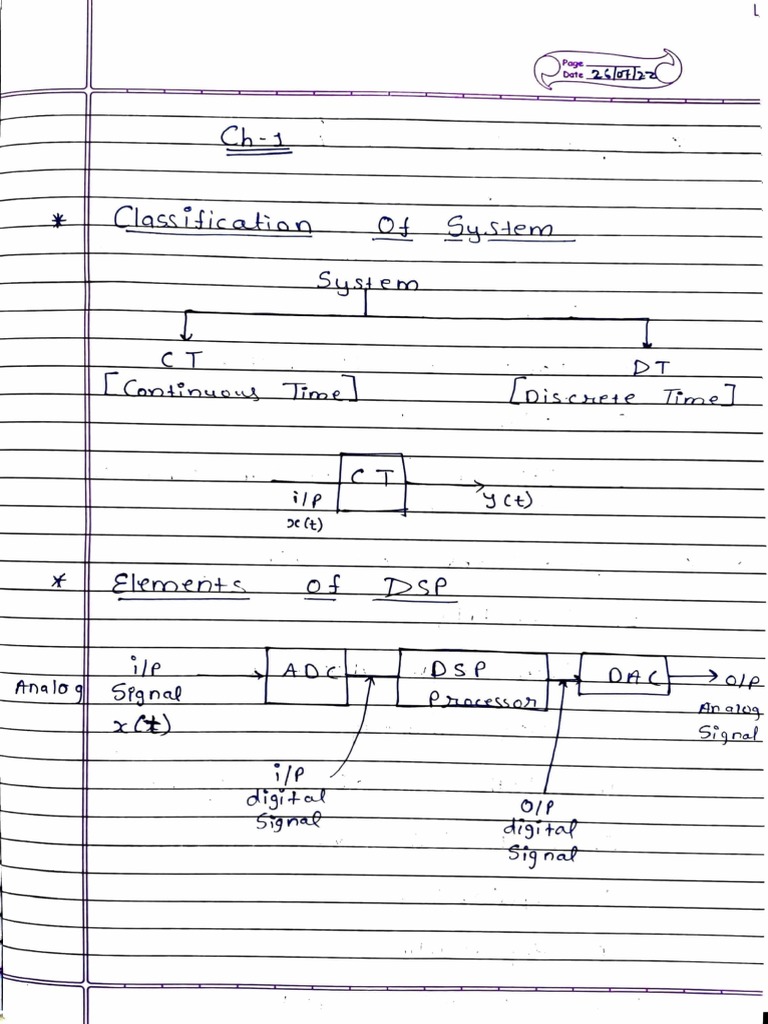 1
Page
Date 26/07/22
Ch-1
* Classification Of System
System
CT DT
[Continuous Time] [Discrete Time]
CT
i/p y(t)
x(t)
* Elements Of DSP
i/p ADC DSP DAC O/P
Analog Signal Processor Analog
x(t) Signal
i/p
digital O/P
Signal digital
Signal